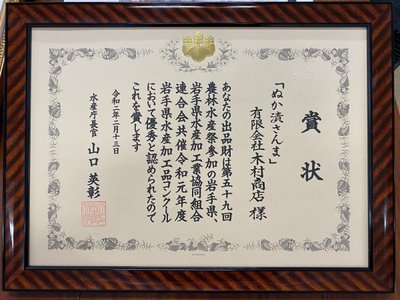 賞状
「ぬか漬さんま」
有限会社木村商店 様
あなたの出品財は第五十九回
農林水産祭参加の岩手県、
岩手県水産加工業協同組合
連合会共催令和元年度
岩手県水産加工品コンクール
において優秀と認められたので
これを賞します
令和二年二月十三日
水産庁長官 山口 英彰